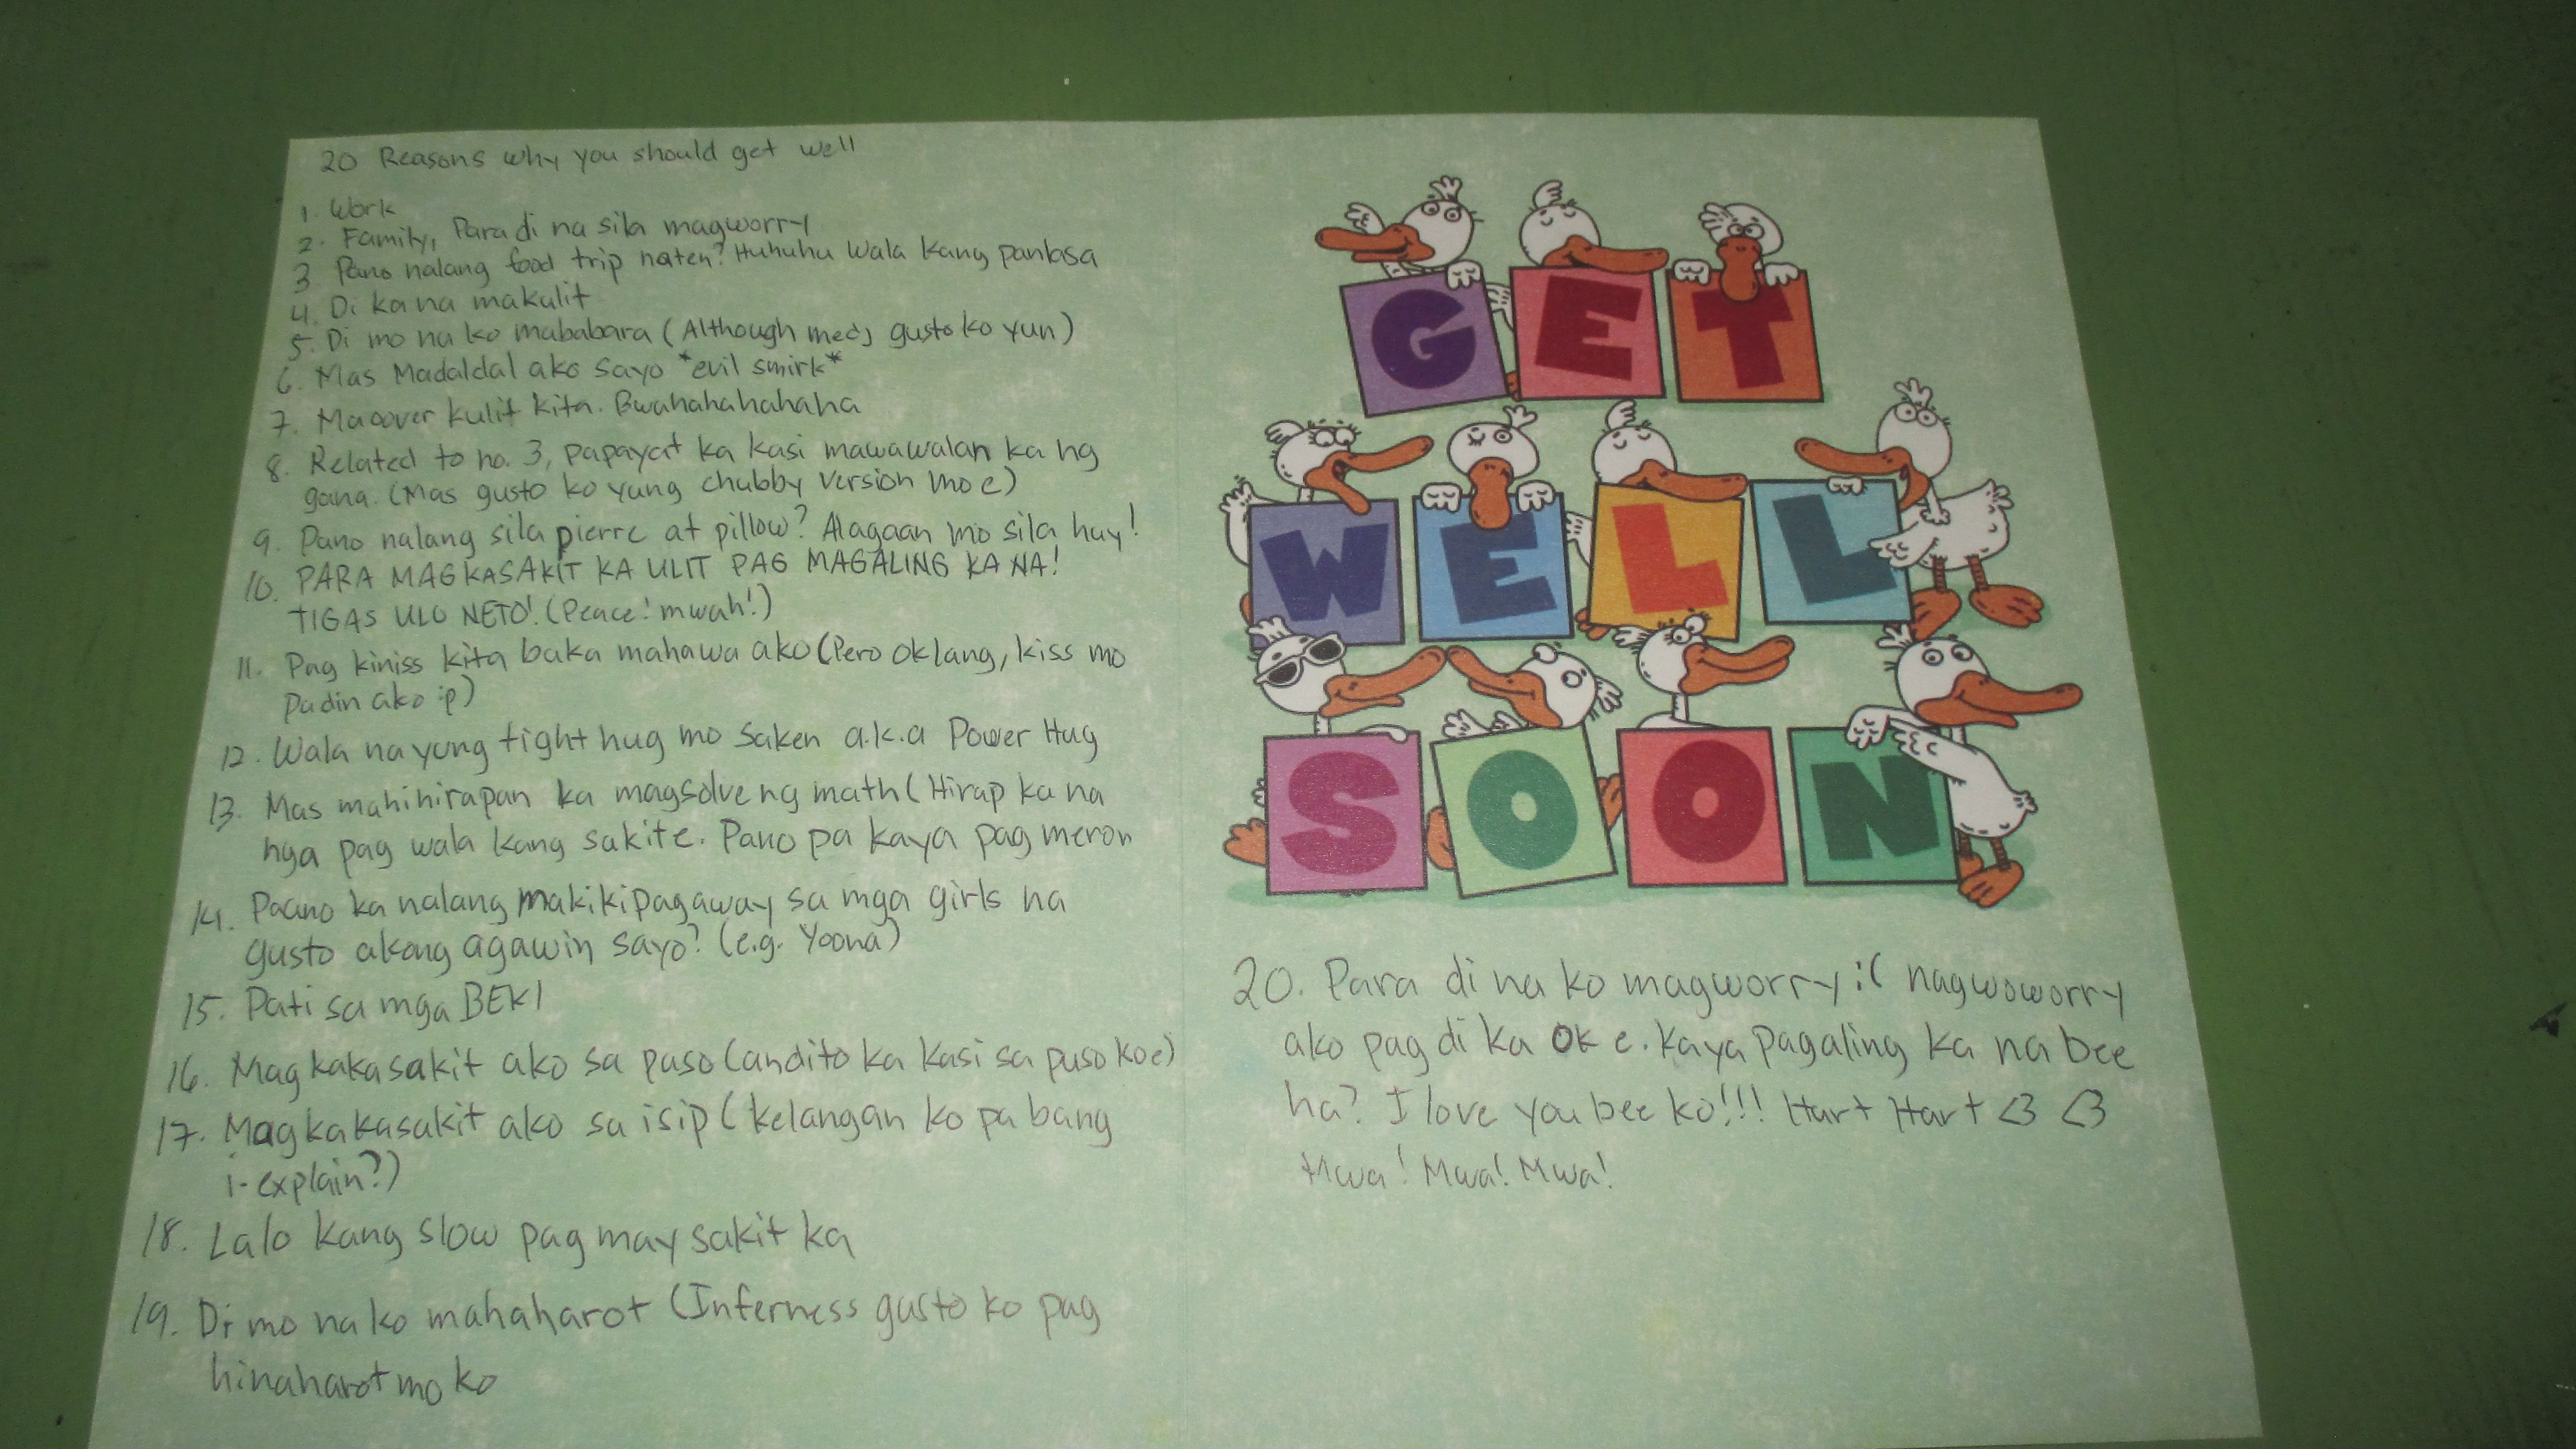 20 Reasons why you should get well
1. Work
2. Family, Para di na sila magworry
3. Pano nalang food trip naten? Huhuhu wala kang panlasa
4. Di ka na makulit
5. Di mo na ko mababara (Although medj gusto ko yun)
6. Mas Madaldal ako sayo *evil smirk*
7. Maoover kulit kita. Bwahahahahaha
8. Related to no. 3, papayat ka kasi mawawalan ka ng
gana. (Mas gusto ko yung chubby version mo e)
9. Pano nalang sila pierre at pillow? Alagaan mo sila huy!
10. PARA MAGKASAKIT KA ULIT PAG MAGALING KA NA!
TIGAS ULO NETO! (Peace! mwah!)
11. Pag kiniss kita baka mahawa ako (Pero ok lang, kiss mo
padin ako :p)
12. Wala na yung tight hug mo saken a.k.a Power Hug
13. Mas mahihirapan ka magsolve ng math (Hirap ka na
nga pag wala kang sakit e. Pano pa kaya pag meron
14. Paano ka nalang makikipagaway sa mga girls na
gusto akong agawin sayo? (e.g. Yoona)
15. Pati sa mga BEKI
16. Magkakasakit ako sa puso (andito ka kasi sa puso ko e)
17. Magkakasakit ako sa isip (kelangan ko pa bang
i-explain?)
18. Lalo kang slow pag may sakit ka
19. Di mo na ko mahaharot (Inferness gusto ko pag
hinaharot mo ko
GET
WELL
SOON
20. Para di na ko magworry :( nagwoworry
ako pag di ka ok e. Kaya pagaling ka na bee
ha? I love you bee ko!!! Hart Hart <3 <3
Mwa! Mwa! Mwa!